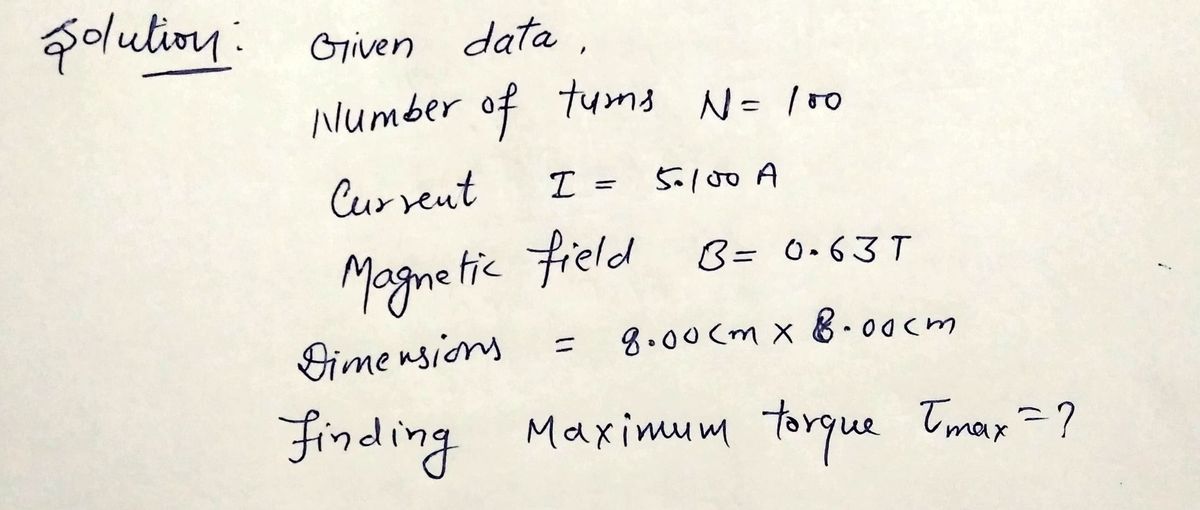 Solution: Given data,
Number of turns N = 100
Current I = 5.100 A
Magnetic field B = 0.63 T
Dimensions = 8.00 cm x 8.00 cm
finding Maximum torque τmax = ?